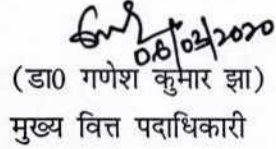 06/02/2020
(डा0 गणेश कुमार झा)
मुख्य वित्त पदाधिकारी